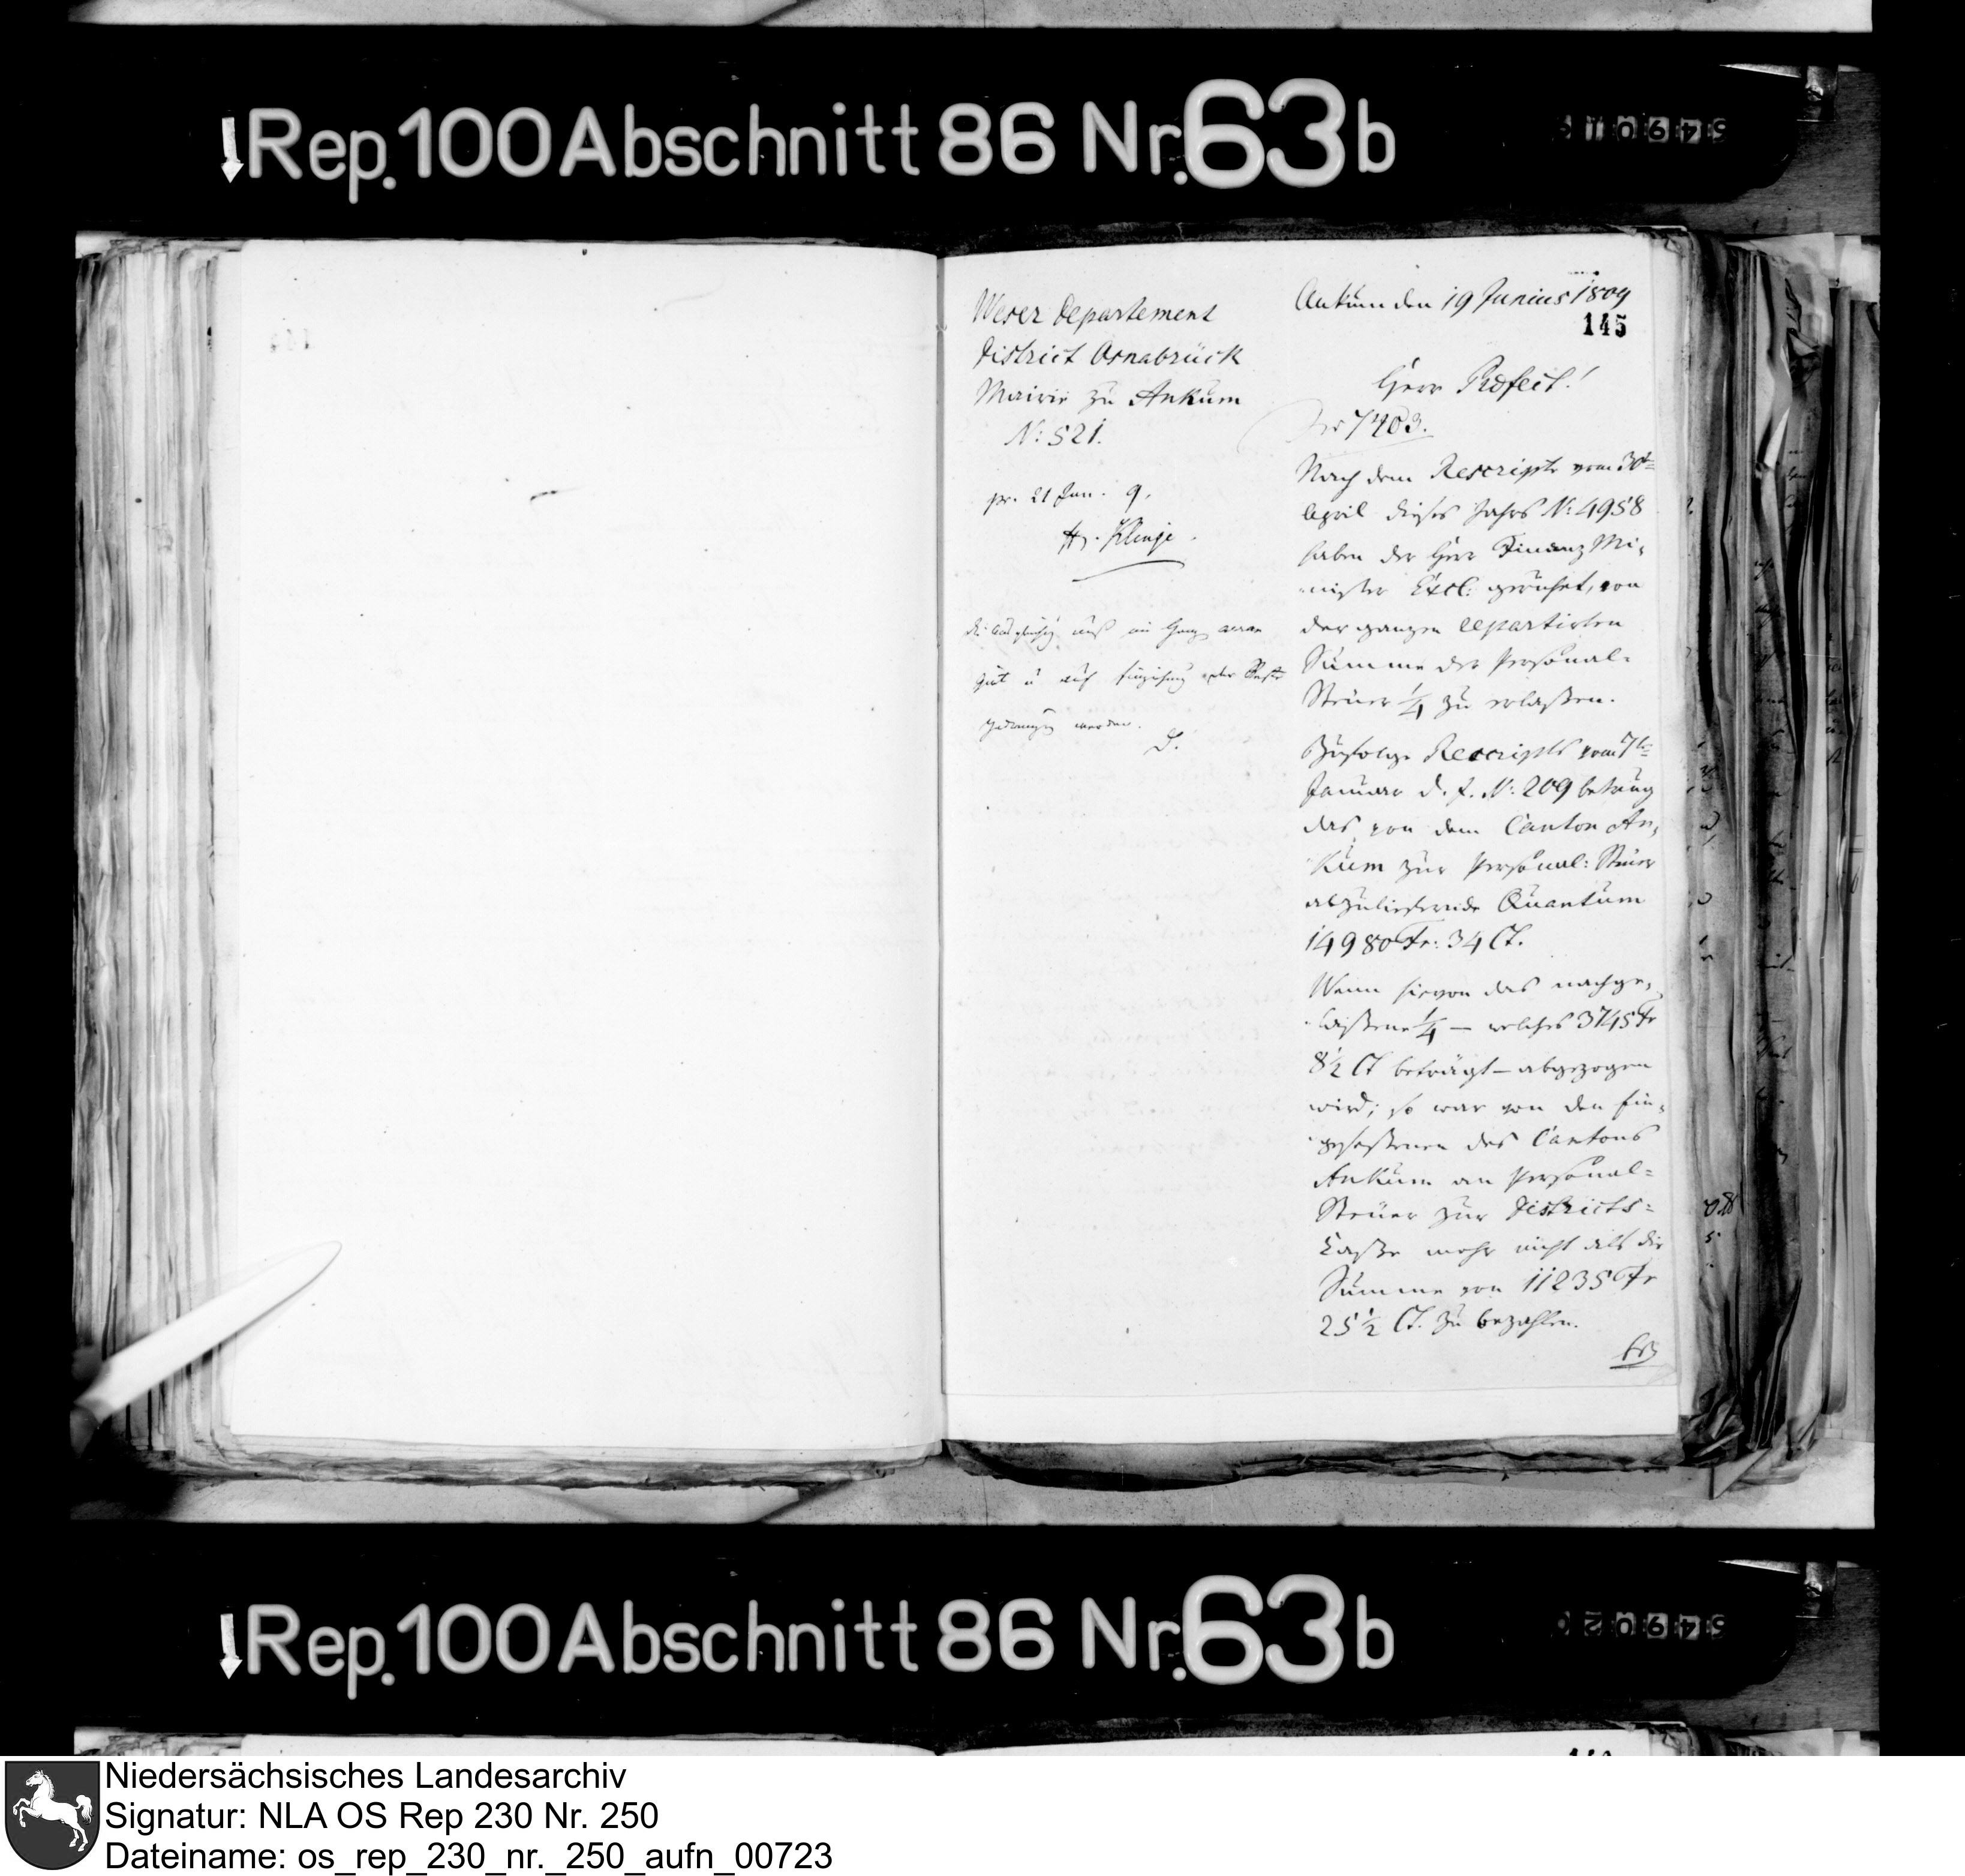 Rep. 100 Abschnitt 86 Nr. 63b
Weser Departement
District Osnabrück
Mairie zu Ankum
N: 521.
pr. 21 Jun. 9.
H. Klinge.
werden.
Ankum den 19 Junius 1809
145
Herr Präfect!
Nach dem Rescripte vom 30t
April dieses Jahrs N: 4958
haben der Herr Finanz Mi-
nister Excl: geruhet, von
der ganzen repartirten
Summe der Personal-
Steuer 1/4 zu erlaßen.
Zufolge Rescripts vom 7t
Januar d. J. N: 209 betrug
das von dem Canton An-
kum zur Personal: Steuer
abzuliefernde Quantum
14980 Fr: 34 Ct.
Wenn hievon das nachge-
laßene 1/4 — welches 3745 Fr
8 1/2 Ct beträgt — abgezogen
wird; so war von den Ein-
geseßenen des Cantons
Ankum an Personal-
Steuer zur Districts-
Caße mehr nicht als die
Summe von 11235 Fr
25 1/2 Ct. zu bezahlen.
Rep. 100 Abschnitt 86 Nr. 63b
Niedersächsisches Landesarchiv
Signatur: NLA OS Rep 230 Nr. 250
Dateiname: os_rep_230_nr._250_aufn_00723